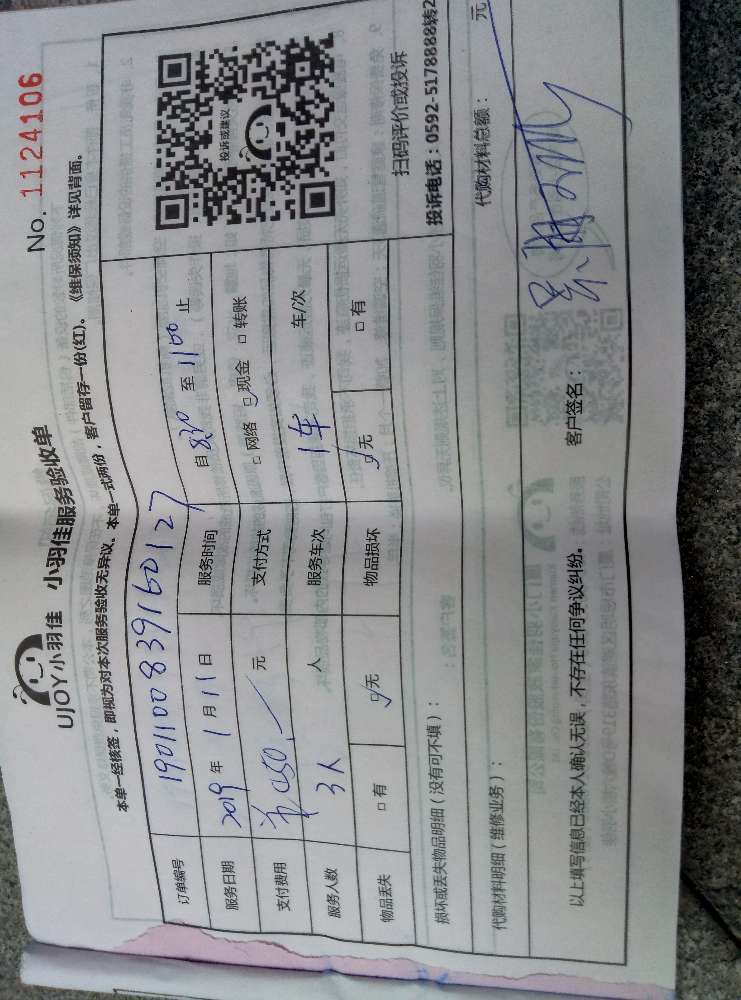 No. 1124106
UJOY小羽佳 小羽佳服务验收单
本单一经核签，即视为对本次服务验收无异议、本单一式两份，客户留存一份(红)。《维保须知》详见背面。
订单编号 1901100839160127
服务日期 2019 年 1 月 11 日 服务时间 自 830 至 1100 止
支付费用 元 支付方式 □ 网络 ☑ 现金 □ 转账
服务人数 3人 人 服务车次 1车 车/次
物品丢失 □ 有 ☑ 无 物品损坏 ☑ 无 □ 有
投诉或建议
扫码评价或投诉
投诉电话：0592-5178888转2
损坏或丢失物品明细（没有可不填）：
代购材料明细（维修业务）： 代购材料总额： 元
以上填写信息已经本人确认无误，不存在任何争议纠纷。 客户签名：